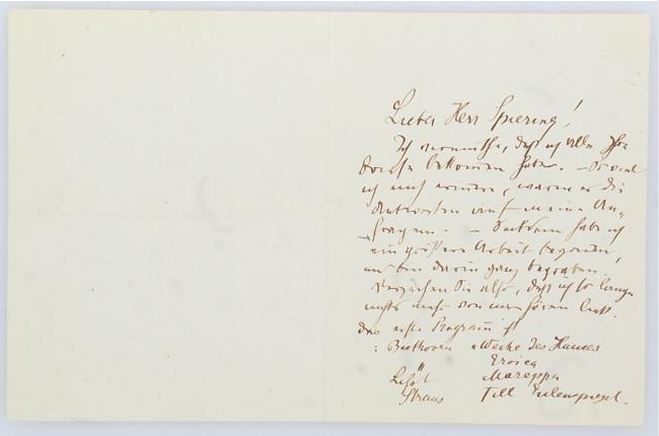 Lieber Herr Spiering!
Ich vermuthe, daß ich alle Ihre
Briefe bekommen habe. – So viel
ich mich erinnere, waren es die
Antworten auf meine An-
fragen. – Seitdem habe ich
eine größere Arbeit begonnen,
und bin darin ganz begraben.
Verzeihen Sie also, daß ich so lange
nichts mehr von mir hören ließ.
Das erste Programm ist
: Beethoven Weihe des Hauses
Eroica
Liszt Mazeppa
Strauss Till Eulenspiegel.